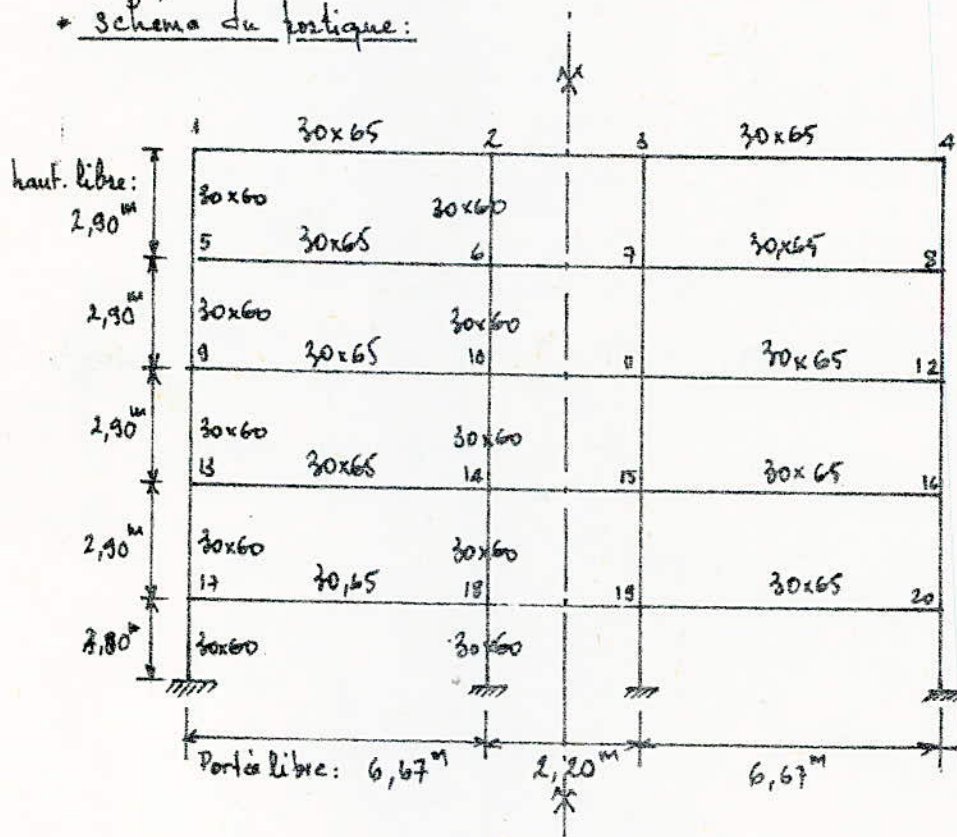 * schema du portique:
1 30x65 2 3 30x65 4
haut. libre:
2,90 m 30x60 30x60
5 30x65 6 7 30x65 8
2,90 m 30x60 30x60
9 30x65 10 11 30x65 12
2,90 m 30x60 30x60
13 30x65 14 15 30x65 16
2,90 m 30x60 30x60
17 30,65 18 19 30x65 20
30x60 30x60
Portée libre: 6,67 m 2,20 m 6,67 m